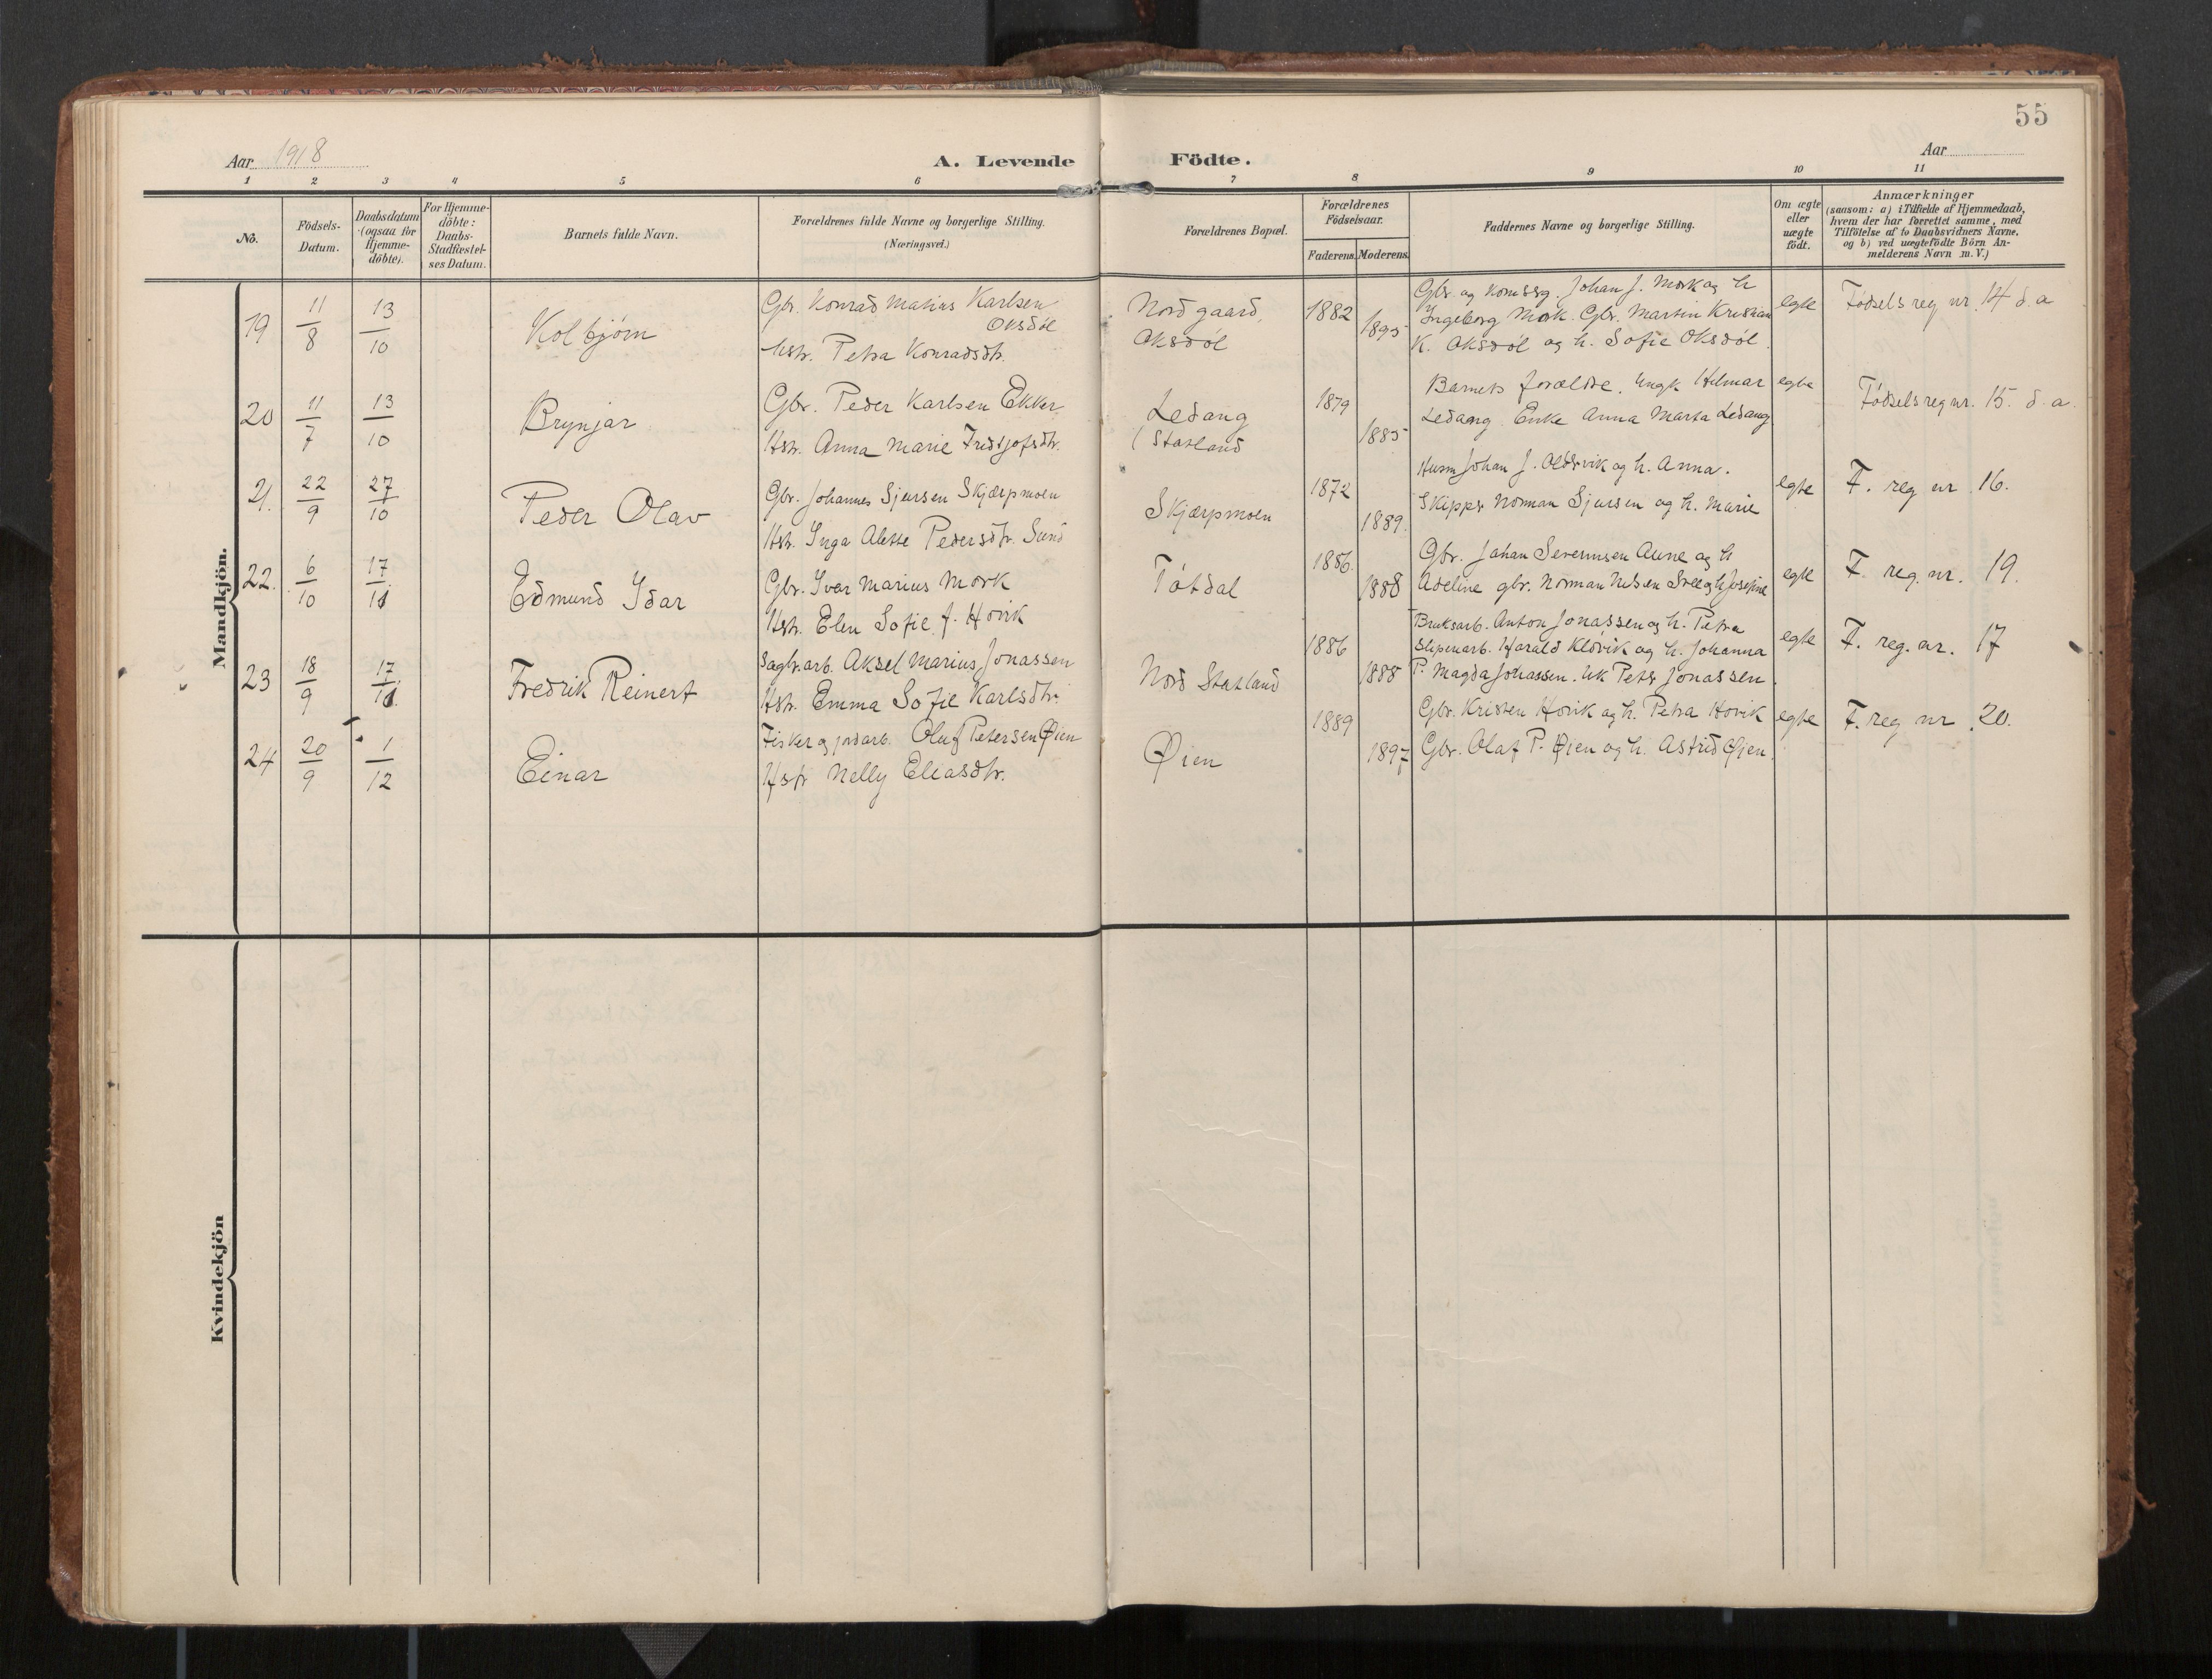 55
Aar 1918
A. Levende Födte.
Aar
1 2 3 4 5 6 7 8 9 10 11
No.
Födsels-Datum.
Daabsdatum (ogsaa for Hjemme-döbte).
For Hjemme-döbte: Daabs-Stadfæstel-ses Datum.
Barnets fulde Navn.
Forældrenes fulde Navne og borgerlige Stilling.
(Næringsvei.)
Forældrenes Bopæl.
Forældrenes Födselsaar.
Faderens. Moderens.
Faddernes Navne og borgerlige Stilling.
Om ægte eller uægte født.
Anmærkninger
(saasom: a) i Tilfælde af Hjemmedaab,
hvem der har forrettet samme, med
Tilföielse af to Daabsvidners Navne,
og b) ved uægtefödte Börn An-
melderens Navn m. V.)
Mandkjön.
19 11/8 13/10 Kolbjørn
Gbr. Konrad Matius Karlsen
Oksdøl
hstr. Petra Konradsdtr.
Nordgaard,
Oksdøl
1882
1895
Gbr. og komssg. Johan J. Mork og h
Ingeborg Mork. Gbr. Martin Kristian
K. Oksdøl og h. Sofie Oksdøl.
egte
Fødselsreg nr. 14 d.a
20 11/7 13/10 Brynjar
Gbr. Peder Karlsen Ekker
Hstr. Anna Marie Fridtjofsdtr.
Ledang
(Statland
1879
1885
Barnets forældre. Ungk Hilmar
Ledang. Enke Anna Marta Ledang
egte
Fødselsreg nr. 15. d.a.
21. 22/9 27/10 Peder Olav
Gbr. Johannes Sjursen Skjærpmoen
Hstr. Inga Alette Pedersdtr. Sund
Skjærpmoen
1872
1889.
Husm Johan J. Aldervik og h. Anna.
Skipper Norman Sjursen og h. Marie
egte
F. reg nr. 16.
22. 6/10 17/11 Edmund Idar
Gbr. Ivar Marius Mork
Hstr. Elen Sofie f. Hovik
Tøtdal
1886.
1888
Gbr. Johan Severinsen Aune og h
Adeline gbr. Norman Nilsen Sve og h Josefine
egte
F. reg. nr. 19.
23 18/9 17/11. Fredrik Reinert
Sagbr.arb. Aksel Marius Jonassen
Hstr. Emma Sofie Karlsdtr.
Nord Statland
1886
1888
Bruksarb. Anton Jonassen og h. Petra
Slipenarb. Harald Kløvik og h. Johanna
P. Magda Johassen. Uk Peter Jonassen.
egte
F. reg. nr. 17
24 20/9 1/12 Einar
Fisker og jordarb. Oluf Petersen Øien
Hstr Nelly Eliasdtr.
Øien
1889
1897
Gbr. Kristen Hovik og h. Petra Hovik
Gbr. Olaf P. Øien og h. Astrid Øien.
egte
F. reg nr. 20.
Kvindekjön